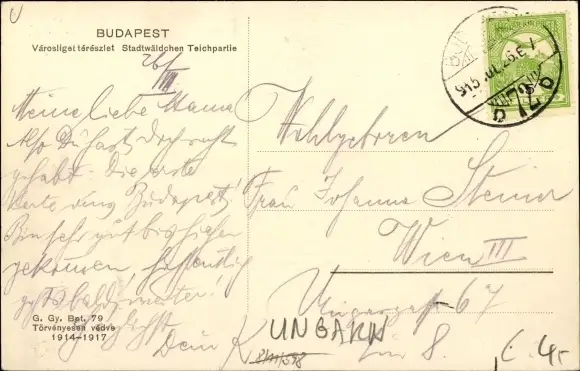 BUDAPEST
Városliget térészlet Stadtwäldchen Teichpartie
26/VII
Meine liebe Mama
Also Du hast doch recht
gehabt. Die erste
Karte aus Budapest!
Bin sehr gut bis hieher
gekommen, hoffentlich
geht's bald weiter!
Dein K
G. Gy. Bpt. 79
Törvényesen védve
1914-1917
Wohlgeboren
Frau Johanna Steiner
Wien III
Ungargasse 67
Tür 8.
UNGARN
€ 4,-
915 JUL 26